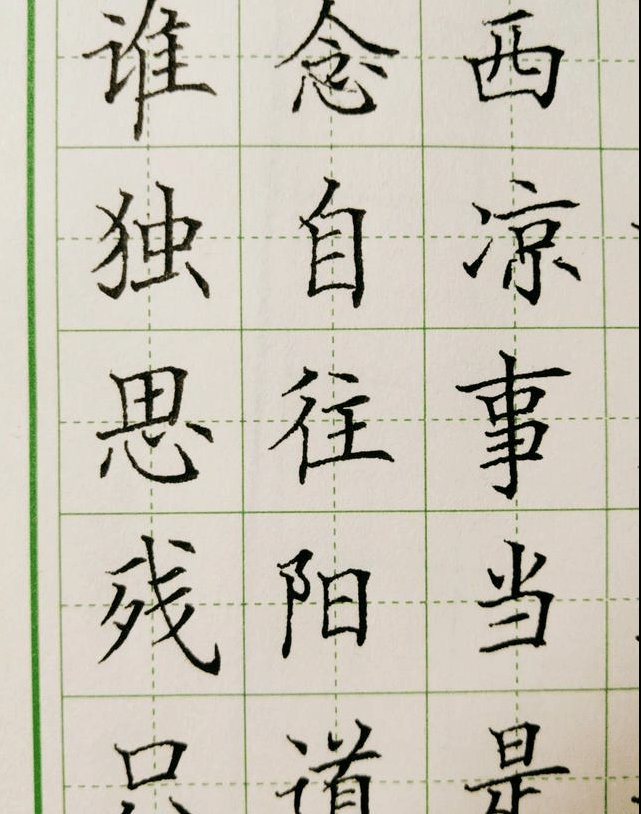 谁念西
独自凉
思往事
残阳当
只道是